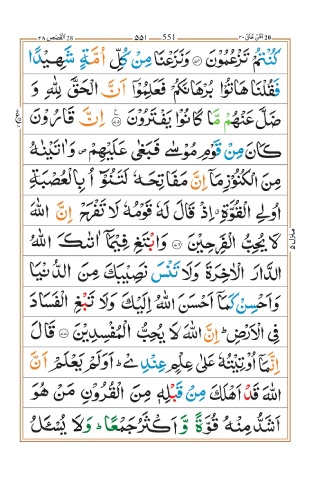 القصص ٢٨ ٥٥١ 551 امن خلق ٢٠
كُنْتُمْ تَزْعُمُوْنَ ﴿۷۴﴾ وَنَزَعْنَا مِنْ كُلِّ اُمَّةٍ شَهِيْدًا
فَقُلْنَا هَاتُوْا بُرْهَانَكُمْ فَعَلِمُوْۤا اَنَّ الْحَقَّ لِلّٰهِ وَ
ضَلَّ عَنْهُمْ مَّا كَانُوْا يَفْتَرُوْنَ ﴿۷۵﴾ اِنَّ قَارُوْنَ
كَانَ مِنْ قَوْمِ مُوْسٰى فَبَغٰى عَلَيْهِمْ ۪ وَاٰتَيْنٰهُ
مِنَ الْكُنُوْزِ مَاۤ اِنَّ مَفَاتِحَهٗ لَتَنُوْٓاُ بِالْعُصْبَةِ
اُولِى الْقُوَّةِ ۗ اِذْ قَالَ لَهٗ قَوْمُهٗ لَا تَفْرَحْ اِنَّ اللّٰهَ
لَا يُحِبُّ الْفَرِحِيْنَ ﴿۷۶﴾ وَابْتَغِ فِيْمَاۤ اٰتٰىكَ اللّٰهُ
الدَّارَ الْاٰخِرَةَ وَلَا تَنْسَ نَصِيْبَكَ مِنَ الدُّنْيَا
وَاَحْسِنْ كَمَاۤ اَحْسَنَ اللّٰهُ اِلَيْكَ وَلَا تَبْغِ الْفَسَادَ
فِى الْاَرْضِ ؕ اِنَّ اللّٰهَ لَا يُحِبُّ الْمُفْسِدِيْنَ ﴿۷۷﴾ قَالَ
اِنَّمَاۤ اُوْتِيْتُهٗ عَلٰى عِلْمٍ عِنْدِىْ ؕ اَوَلَمْ يَعْلَمْ اَنَّ
اللّٰهَ قَدْ اَهْلَكَ مِنْ قَبْلِهٖ مِنَ الْقُرُوْنِ مَنْ هُوَ
اَشَدُّ مِنْهُ قُوَّةً وَّاَكْثَرُ جَمْعًا ؕ وَلَا يُسْـَٔلُ
منزل ٥